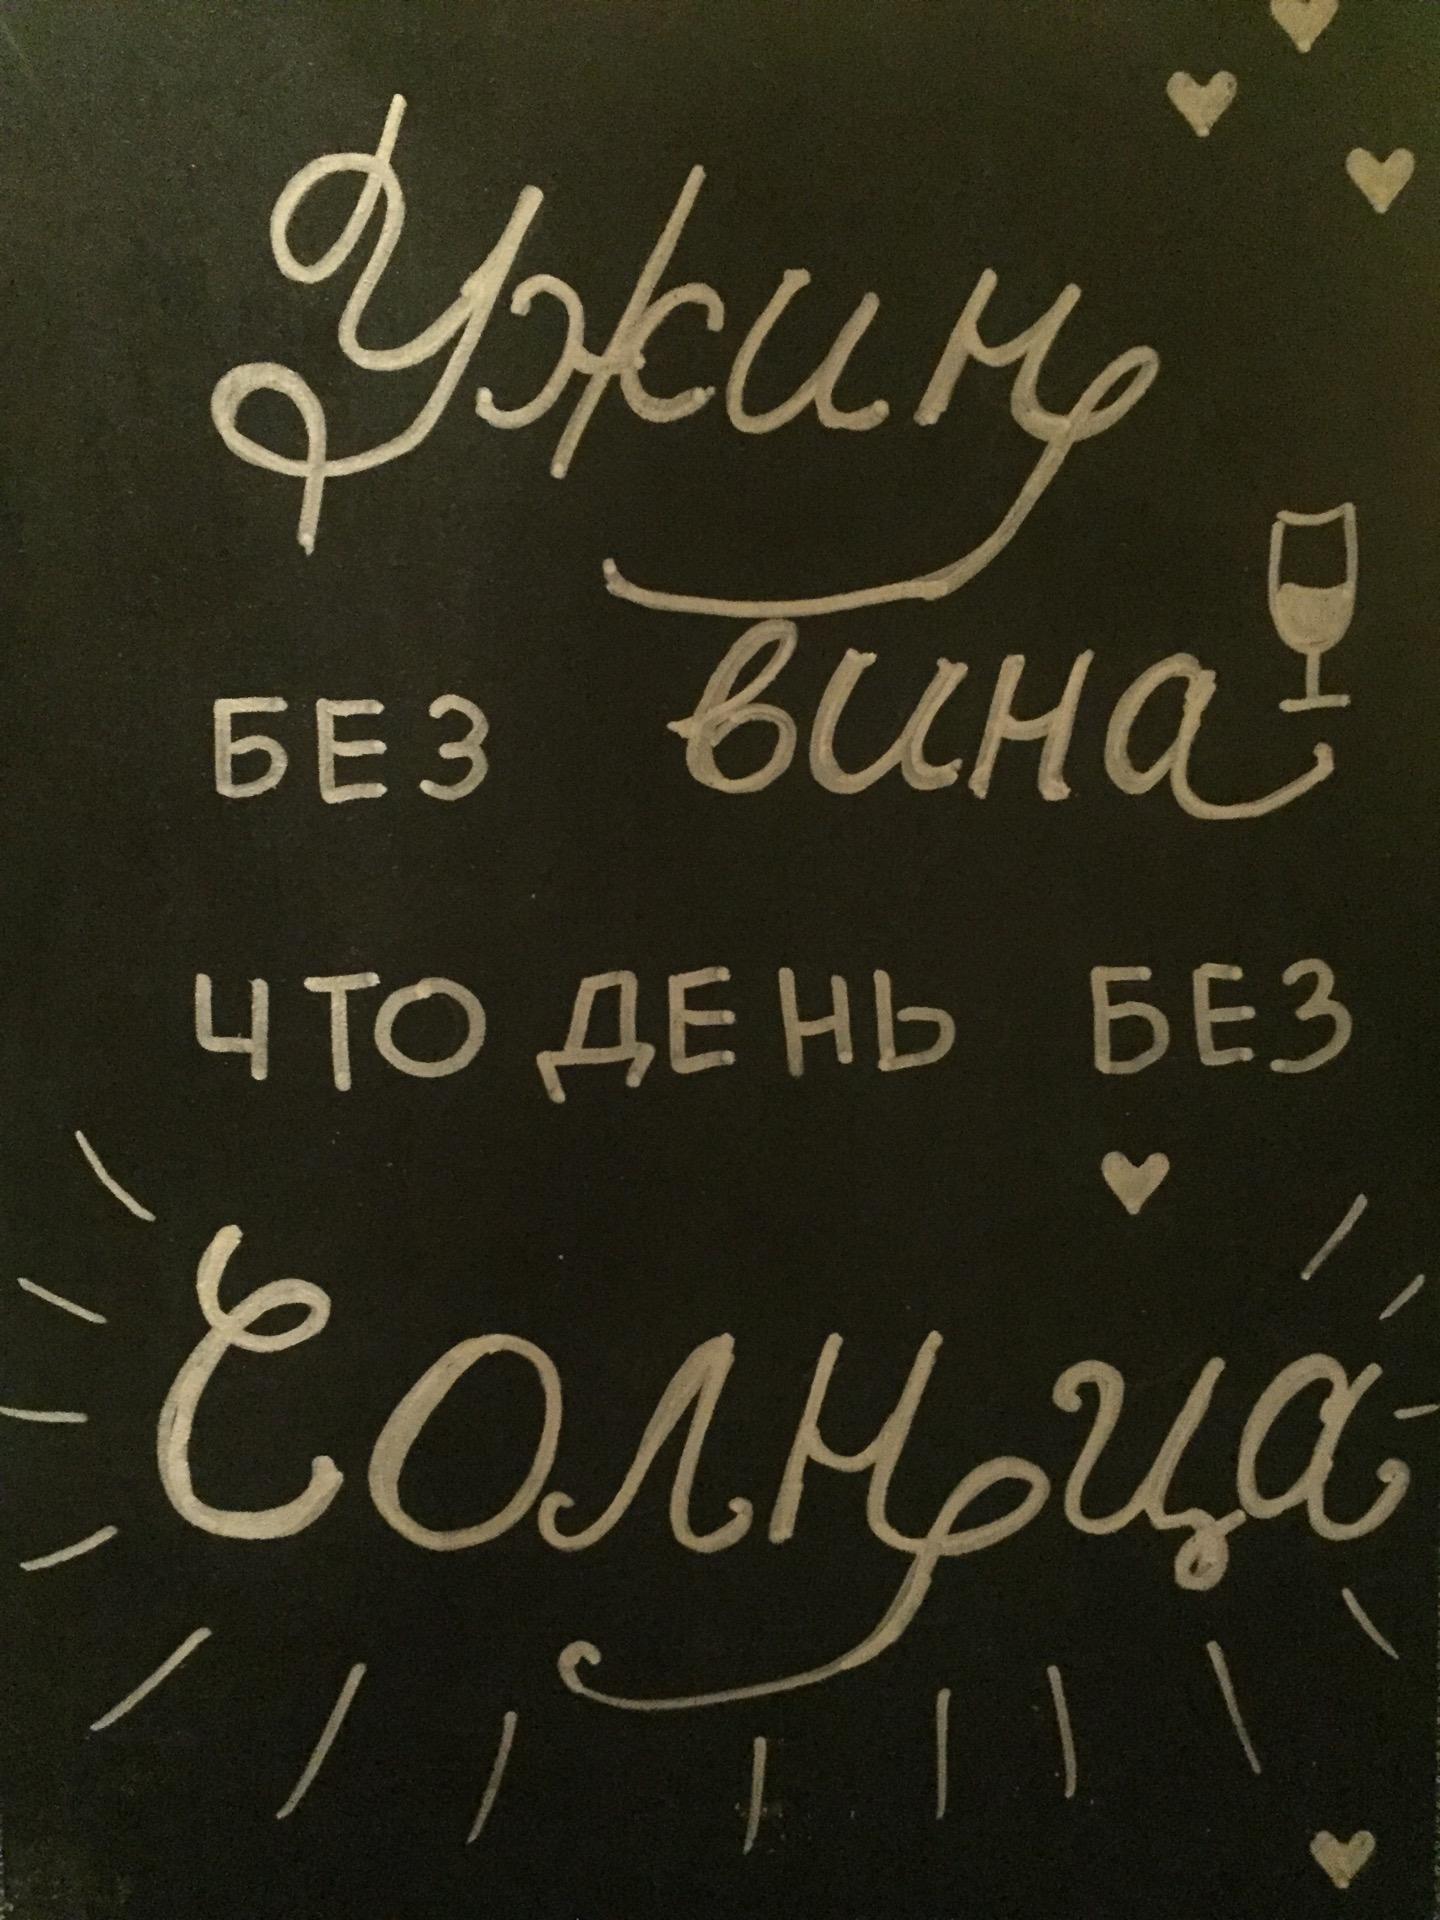 Ужин
БЕЗ вина
ЧТО ДЕНЬ БЕЗ
Солнца